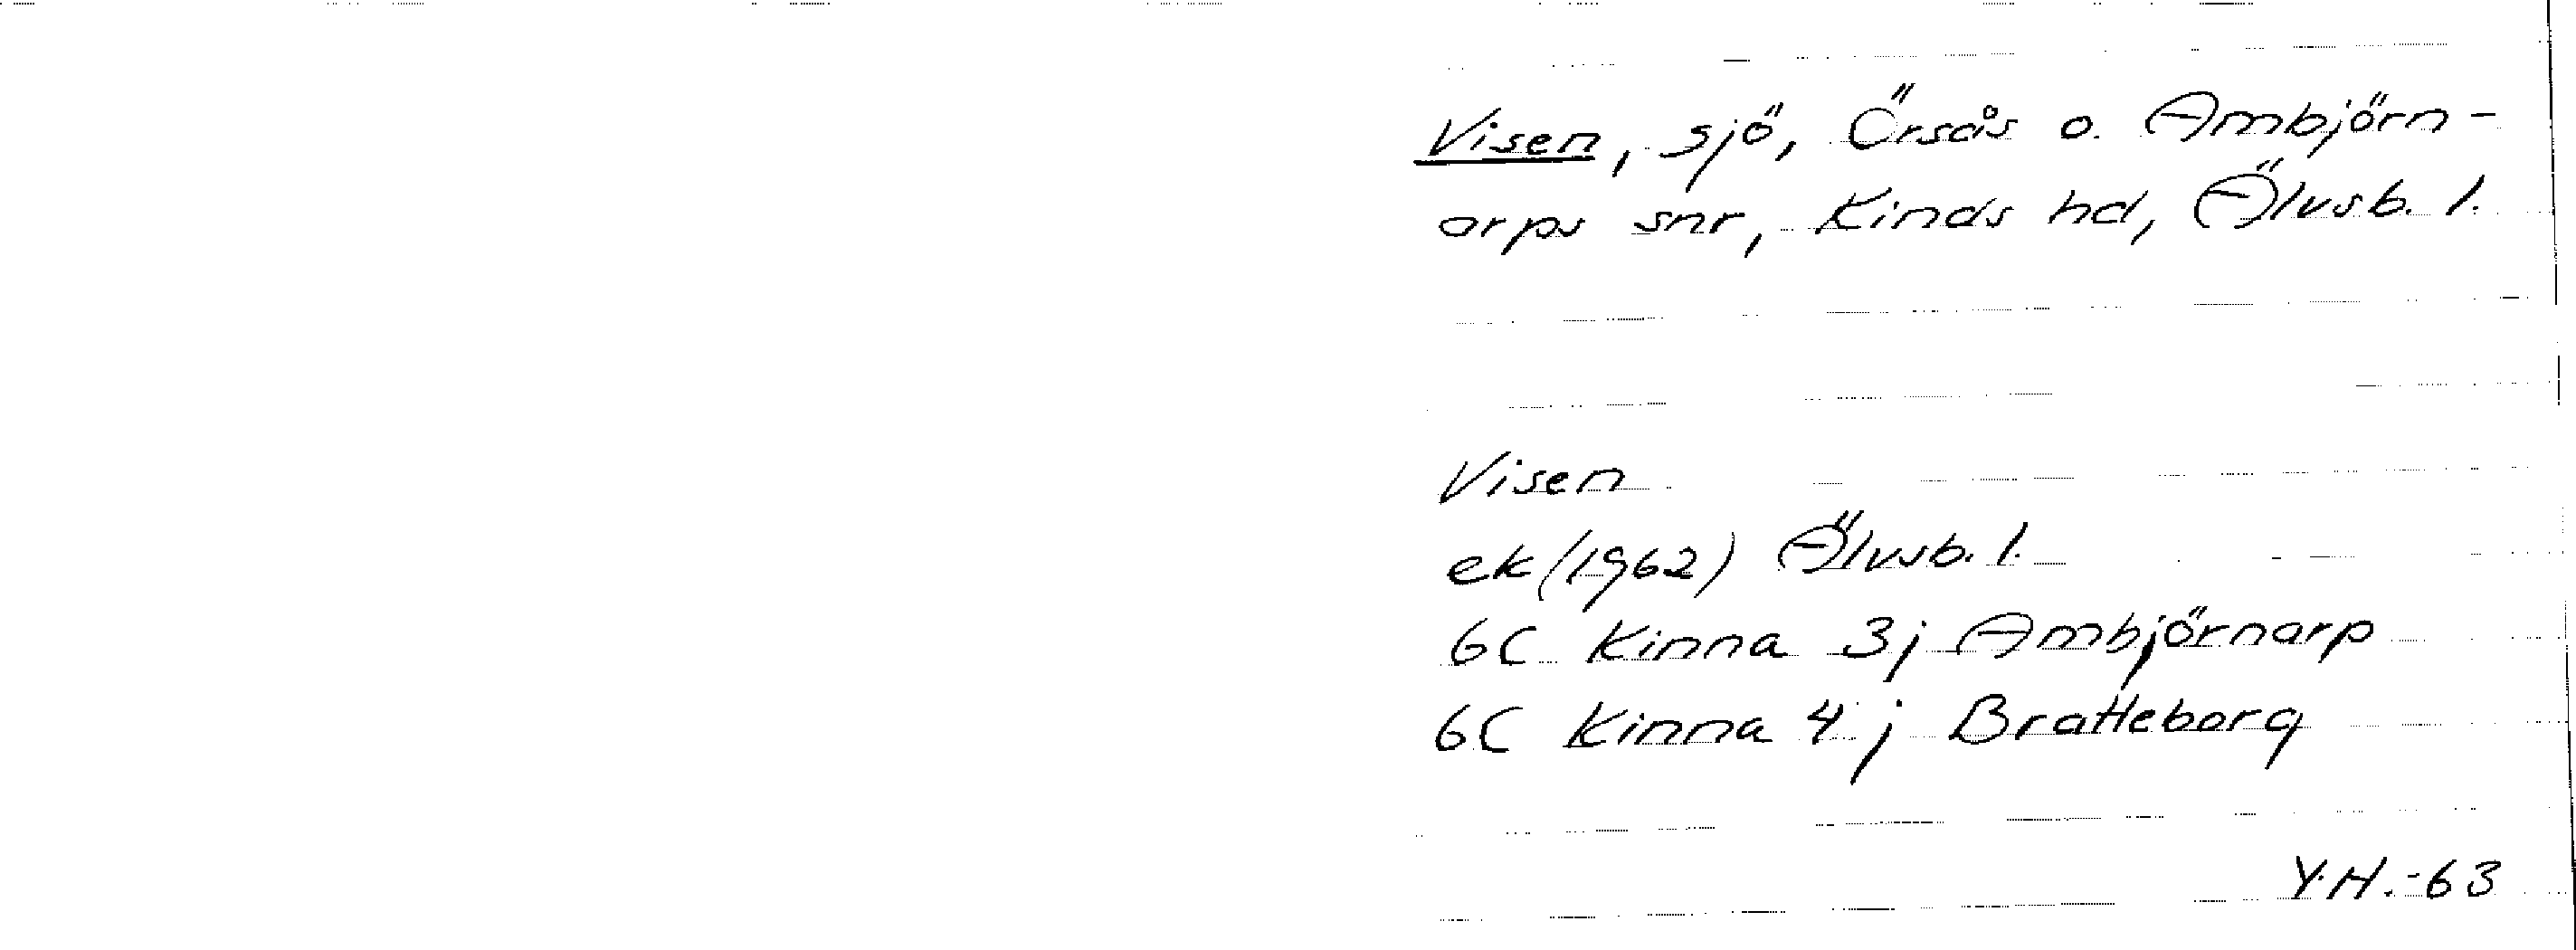 Visen, sjö, Örsås o. Ambjörn-
arps snr, Kinds hd, Älvsb. l.
Visen
ek (1962) Älvsb. l.
6C Kinna 3j Ambjörnarp
6C Kinna 4j Bratteborg
Y.H.-63